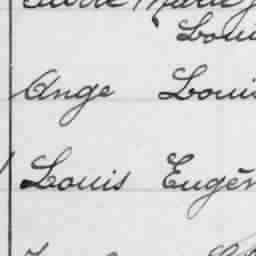 Marie
Loui
Ange Louis
Louis Eugèn